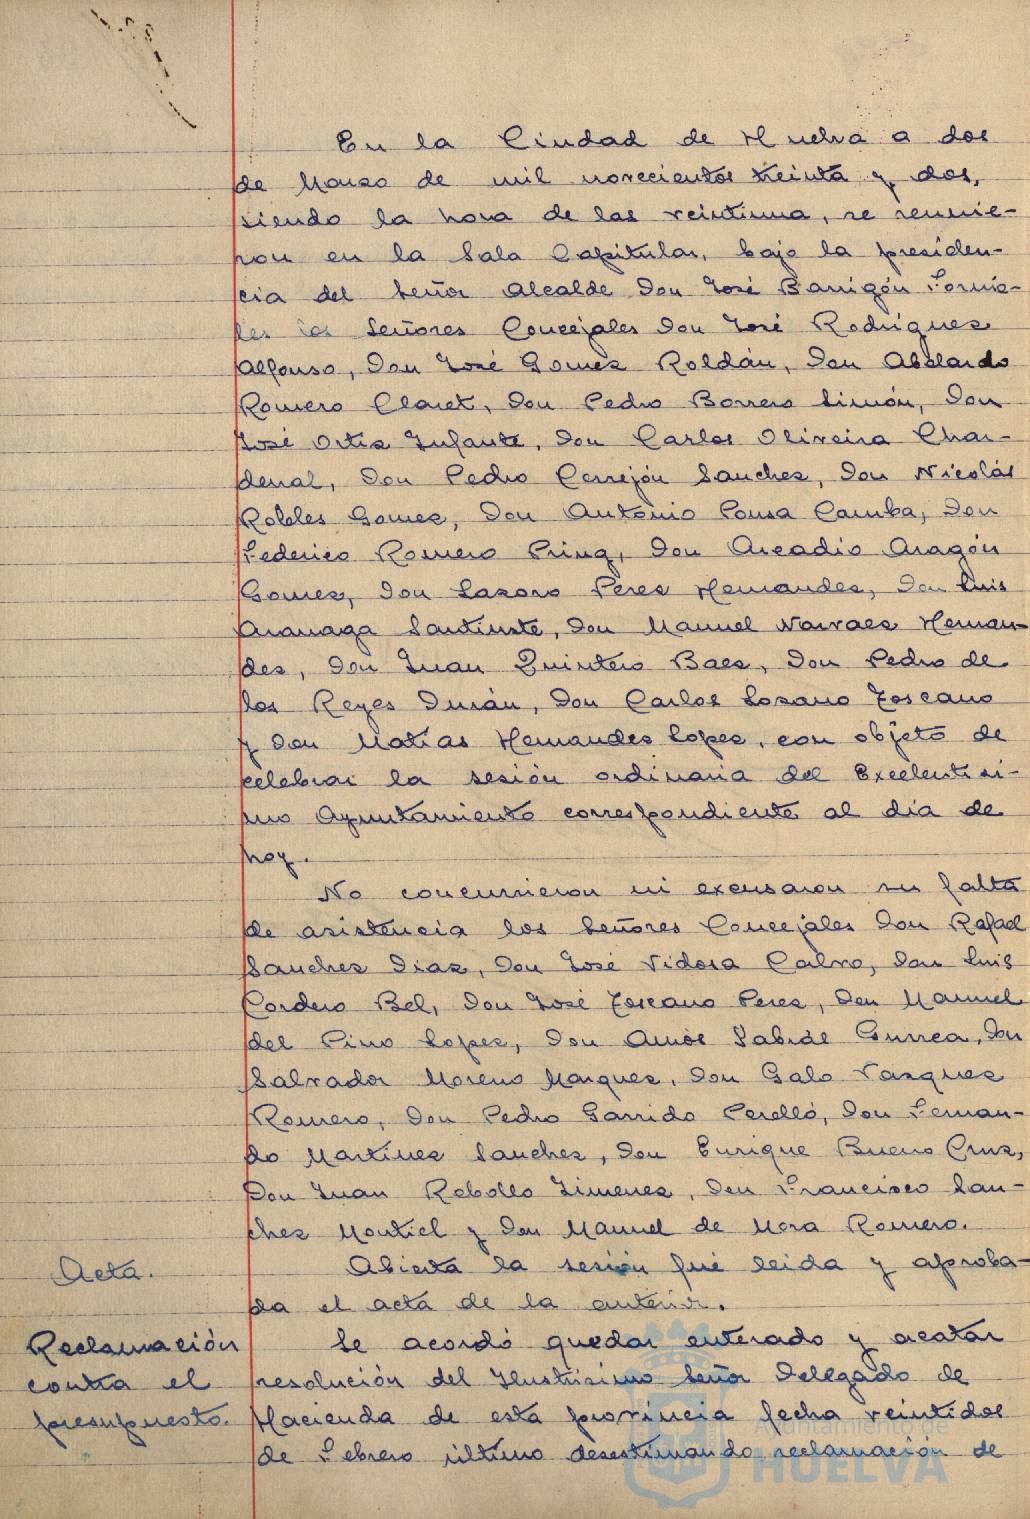 En la Ciudad de Huelva a dos
de Marzo de mil novecientos treinta y dos,
siendo la hora de las veintiuna, se reunie-
ron en la Sala Capitular, bajo la presiden-
cia del Señor Alcalde Don José Barrigón Fornie-
les los Señores Concejales Don José Rodriguez
Alfonso, Don José Gomez Roldán, Don Abelardo
Romero Claret, Don Pedro Borrero Limón, Don
José Ortiz Infante, Don Carlos Oliveira Char-
denal, Don Pedro Cerrejón Sanchez, Don Nicolás
Robles Gomez, Don Antonio Pousa Camba, Don
Federico Romero Pring, Don Arcadio Aragón
Gomez, Don Lazaro Perez Hernandez, Don Luis
Aranaga Santiuste, Don Manuel Narvaez Hernan-
dez, Don Juan Quintero Baez, Don Pedro de
los Reyes Durán, Don Carlos Lozano Toscano
y Don Matías Hernandez Lopez, con objeto de
celebrar la sesión ordinaria del Excelentisi-
mo Ayuntamiento correspondiente al día de
hoy.
No concurrieron ni excusaron su falta
de asistencia los Señores Concejales Don Rafael
Sanchez Diaz, Don José Vidosa Calvo, Don Luis
Cordero Bel, Don José Toscano Perez, Don Manuel
del Pino Lopez, Don Amós Sabrás Gurrea, Don
Salvador Moreno Marquez, Don Galo Vazquez
Romero, Don Pedro Garrido Perelló, Don Fernan-
do Martinez Sanchez, Don Enrique Bueno Cruz,
Don Juan Rebollo Jimenez, Don Francisco San-
chez Montiel y Don Manuel de Mora Romero.
Acta.
Abierta la sesión fué leida y aproba-
da el acta de la anterior.
Reclamación
contra el
presupuesto.
Se acordó quedar enterado y acatar
resolución del Ilustrisimo Señor Delegado de
Hacienda de esta provincia fecha veintidos
de Febrero último desestimando reclamación de
Ayuntamiento de
HUELVA